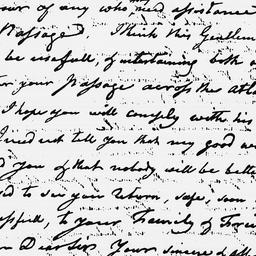 our of any who need assistance
Passage). I think this Gentlem
be usefull, & entertaining both a
or your Passage across the atla
I hope you will comply with his
I need not tell you that my good w
d you & that nobody will be better
sed to see your return, safe, soon
essfull, to your Family & Frien
Dear Sir Your sincere & aff